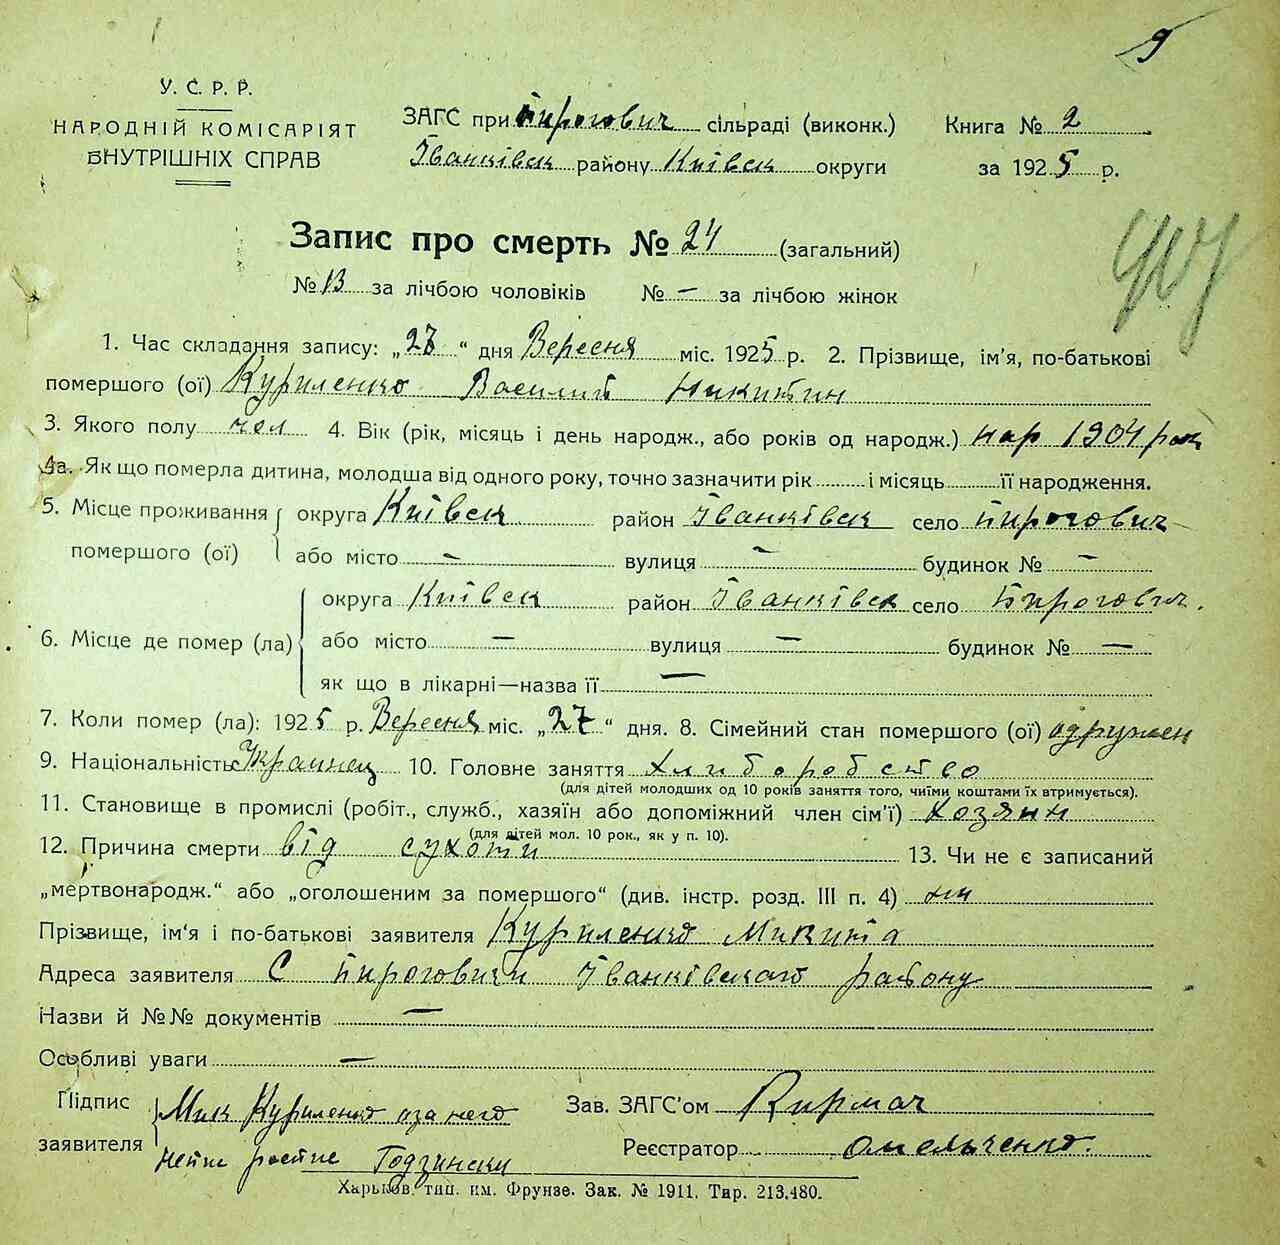 9
У. С. Р. Р.
НАРОДНІЙ КОМІСАРІЯТ
ВНУТРІШНІХ СПРАВ
ЗАГС при Пирогович сільраді (виконк.)
Іванківск району Київск округи
Книга № 2
за 1925 р.
Запис про смерть № 24 (загальний)
№ 13 за лічбою чоловіків № — за лічбою жінок
1. Час складання запису: „28“ дня Вересня міс. 1925 р. 2. Прізвище, ім'я, по-батькові
помершого (ої) Куриленко Василий Никитин
3. Якого полу чол 4. Вік (рік, місяць і день народж., або років од народж.) нар 1904 рок
4а. Як що померла дитина, молодша від одного року, точно зазначити рік і місяць її народження.
5. Місце проживання помершого (ої) округа Київск район Іванківск село Пирогович
або місто — вулиця — будинок № —
6. Місце де помер (ла) округа Київск район Іванківск село Пирогович.
або місто — вулиця — будинок № —
як що в лікарні—назва її —
7. Коли помер (ла): 1925 р. Вересня міс. „27“ дня. 8. Сімейний стан помершого (ої) одружен
9. Національність Украинец 10. Головне заняття хлиборобство
(для дітей молодших од 10 років заняття того, чиїми коштами їх втримується).
11. Становище в промислі (робіт., служб., хазяїн або допоміжний член сім'ї) хозяин
(для дітей мол. 10 рок., як у п. 10).
12. Причина смерти від сухоти 13. Чи не є записаний
„мертвонародж.“ або „оголошеним за помершого“ (див. інстр. розд. III п. 4) ни
Прізвище, ім'я і по-батькові заявителя Куриленко Микита
Адреса заявителя С Пироговичи Іванківскаго району
Назви й №№ документів —
Особливі уваги —
Підпис заявителя Мик Куриленко аза него
Зав. ЗАГС'ом Кирмач
Реєстратор Омельченко.
Харьков. тип. им. Фрунзе. Зак. № 1911. Тир. 213.480.